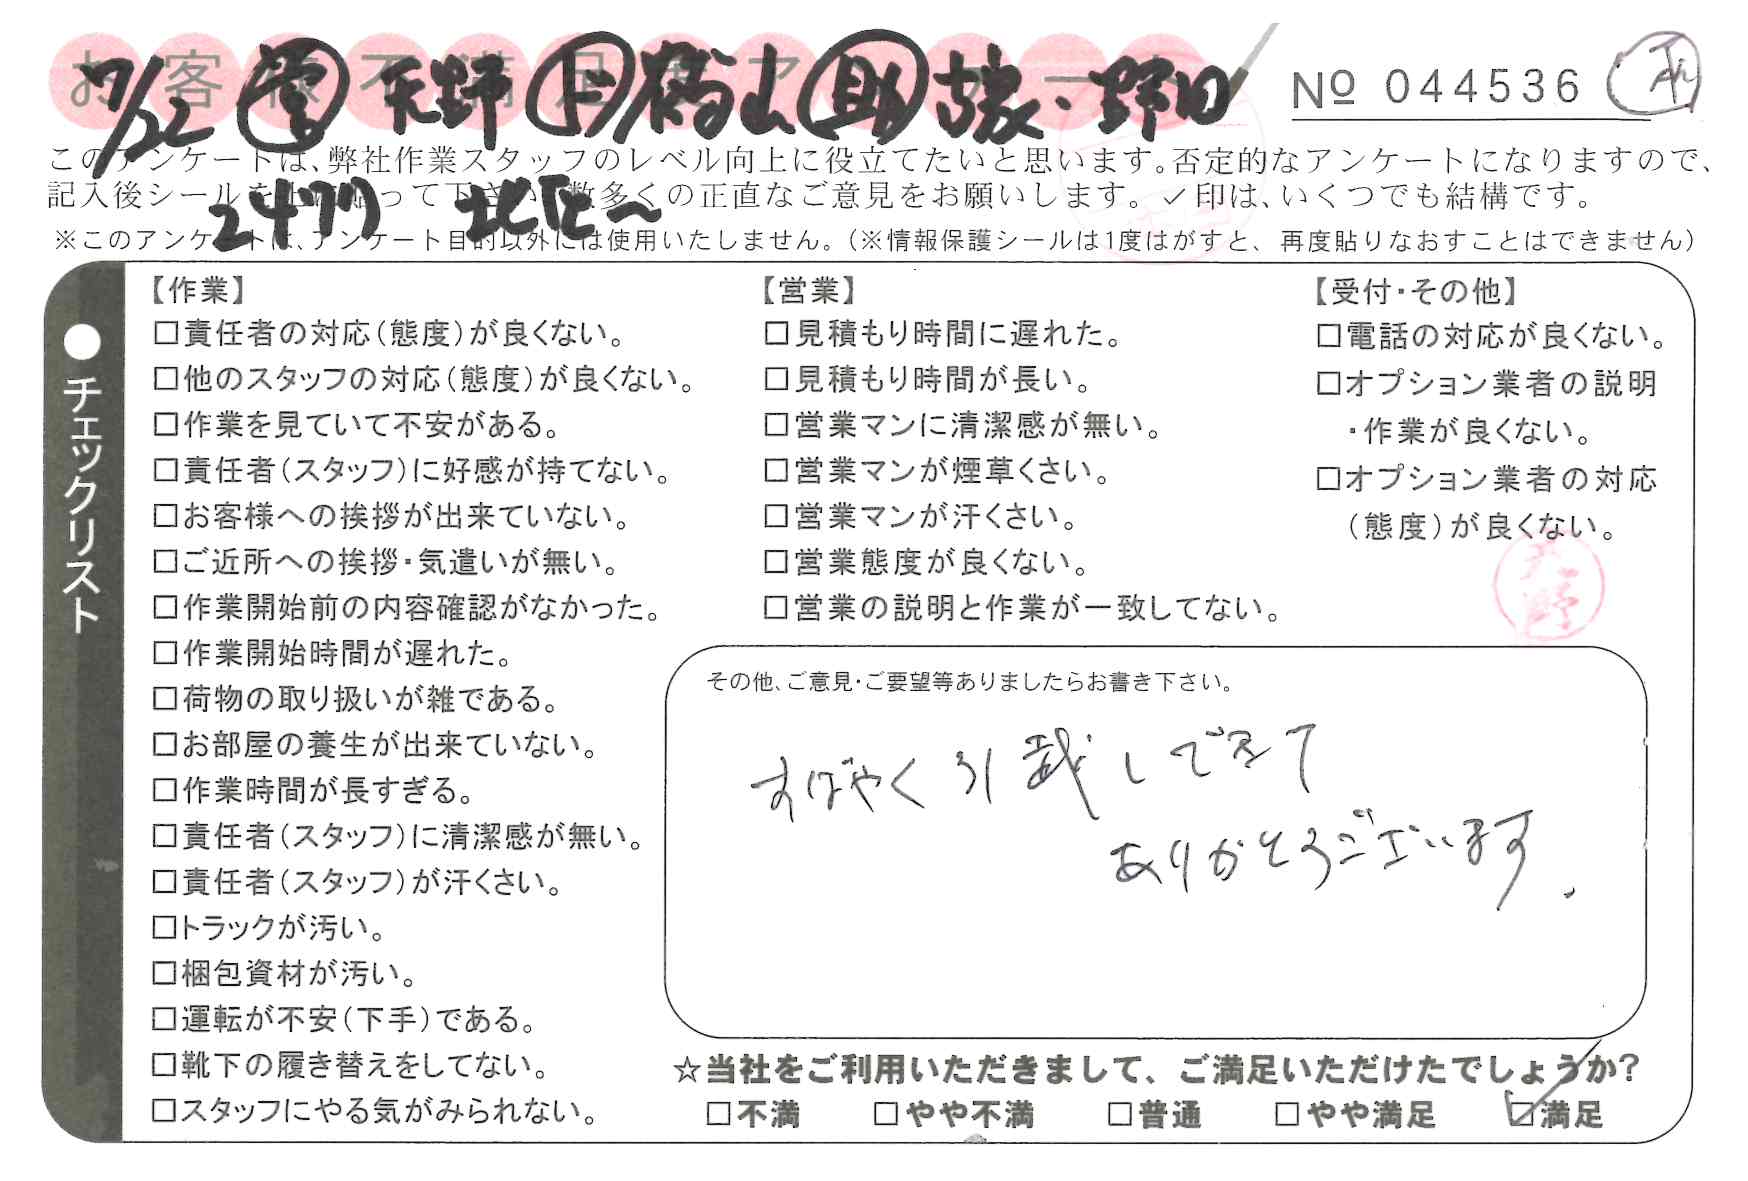 お客様不満足度アンケート
7/22 営 天野 助 古衮・野田
№ 044536
このアンケートは、弊社作業スタッフのレベル向上に役立てたいと思います。否定的なアンケートになりますので、
記入後シールを上に貼って下さい。数多くの正直なご意見をお願いします。✓印は、いくつでも結構です。
2471 北区〜
※このアンケートは、アンケート目的以外には使用いたしません。(※情報保護シールは1度はがすと、再度貼りなおすことはできません)
●チェックリスト
【作業】
□責任者の対応(態度)が良くない。
□他のスタッフの対応(態度)が良くない。
□作業を見ていて不安がある。
□責任者(スタッフ)に好感が持てない。
□お客様への挨拶が出来ていない。
□ご近所への挨拶・気遣いが無い。
□作業開始前の内容確認がなかった。
□作業開始時間が遅れた。
□荷物の取り扱いが雑である。
□お部屋の養生が出来ていない。
□作業時間が長すぎる。
□責任者(スタッフ)に清潔感が無い。
□責任者(スタッフ)が汗くさい。
□トラックが汚い。
□梱包資材が汚い。
□運転が不安(下手)である。
□靴下の履き替えをしてない。
□スタッフにやる気がみられない。
【営業】
□見積もり時間に遅れた。
□見積もり時間が長い。
□営業マンに清潔感が無い。
□営業マンが煙草くさい。
□営業マンが汗くさい。
□営業態度が良くない。
□営業の説明と作業が一致してない。
【受付・その他】
□電話の対応が良くない。
□オプション業者の説明
・作業が良くない。
□オプション業者の対応
(態度)が良くない。
天野
その他、ご意見・ご要望等ありましたらお書き下さい。
すばやく引越しできて
ありがとうございます.
☆当社をご利用いただきまして、ご満足いただけたでしょうか?
□不満 □やや不満 □普通 □やや満足 ☑満足